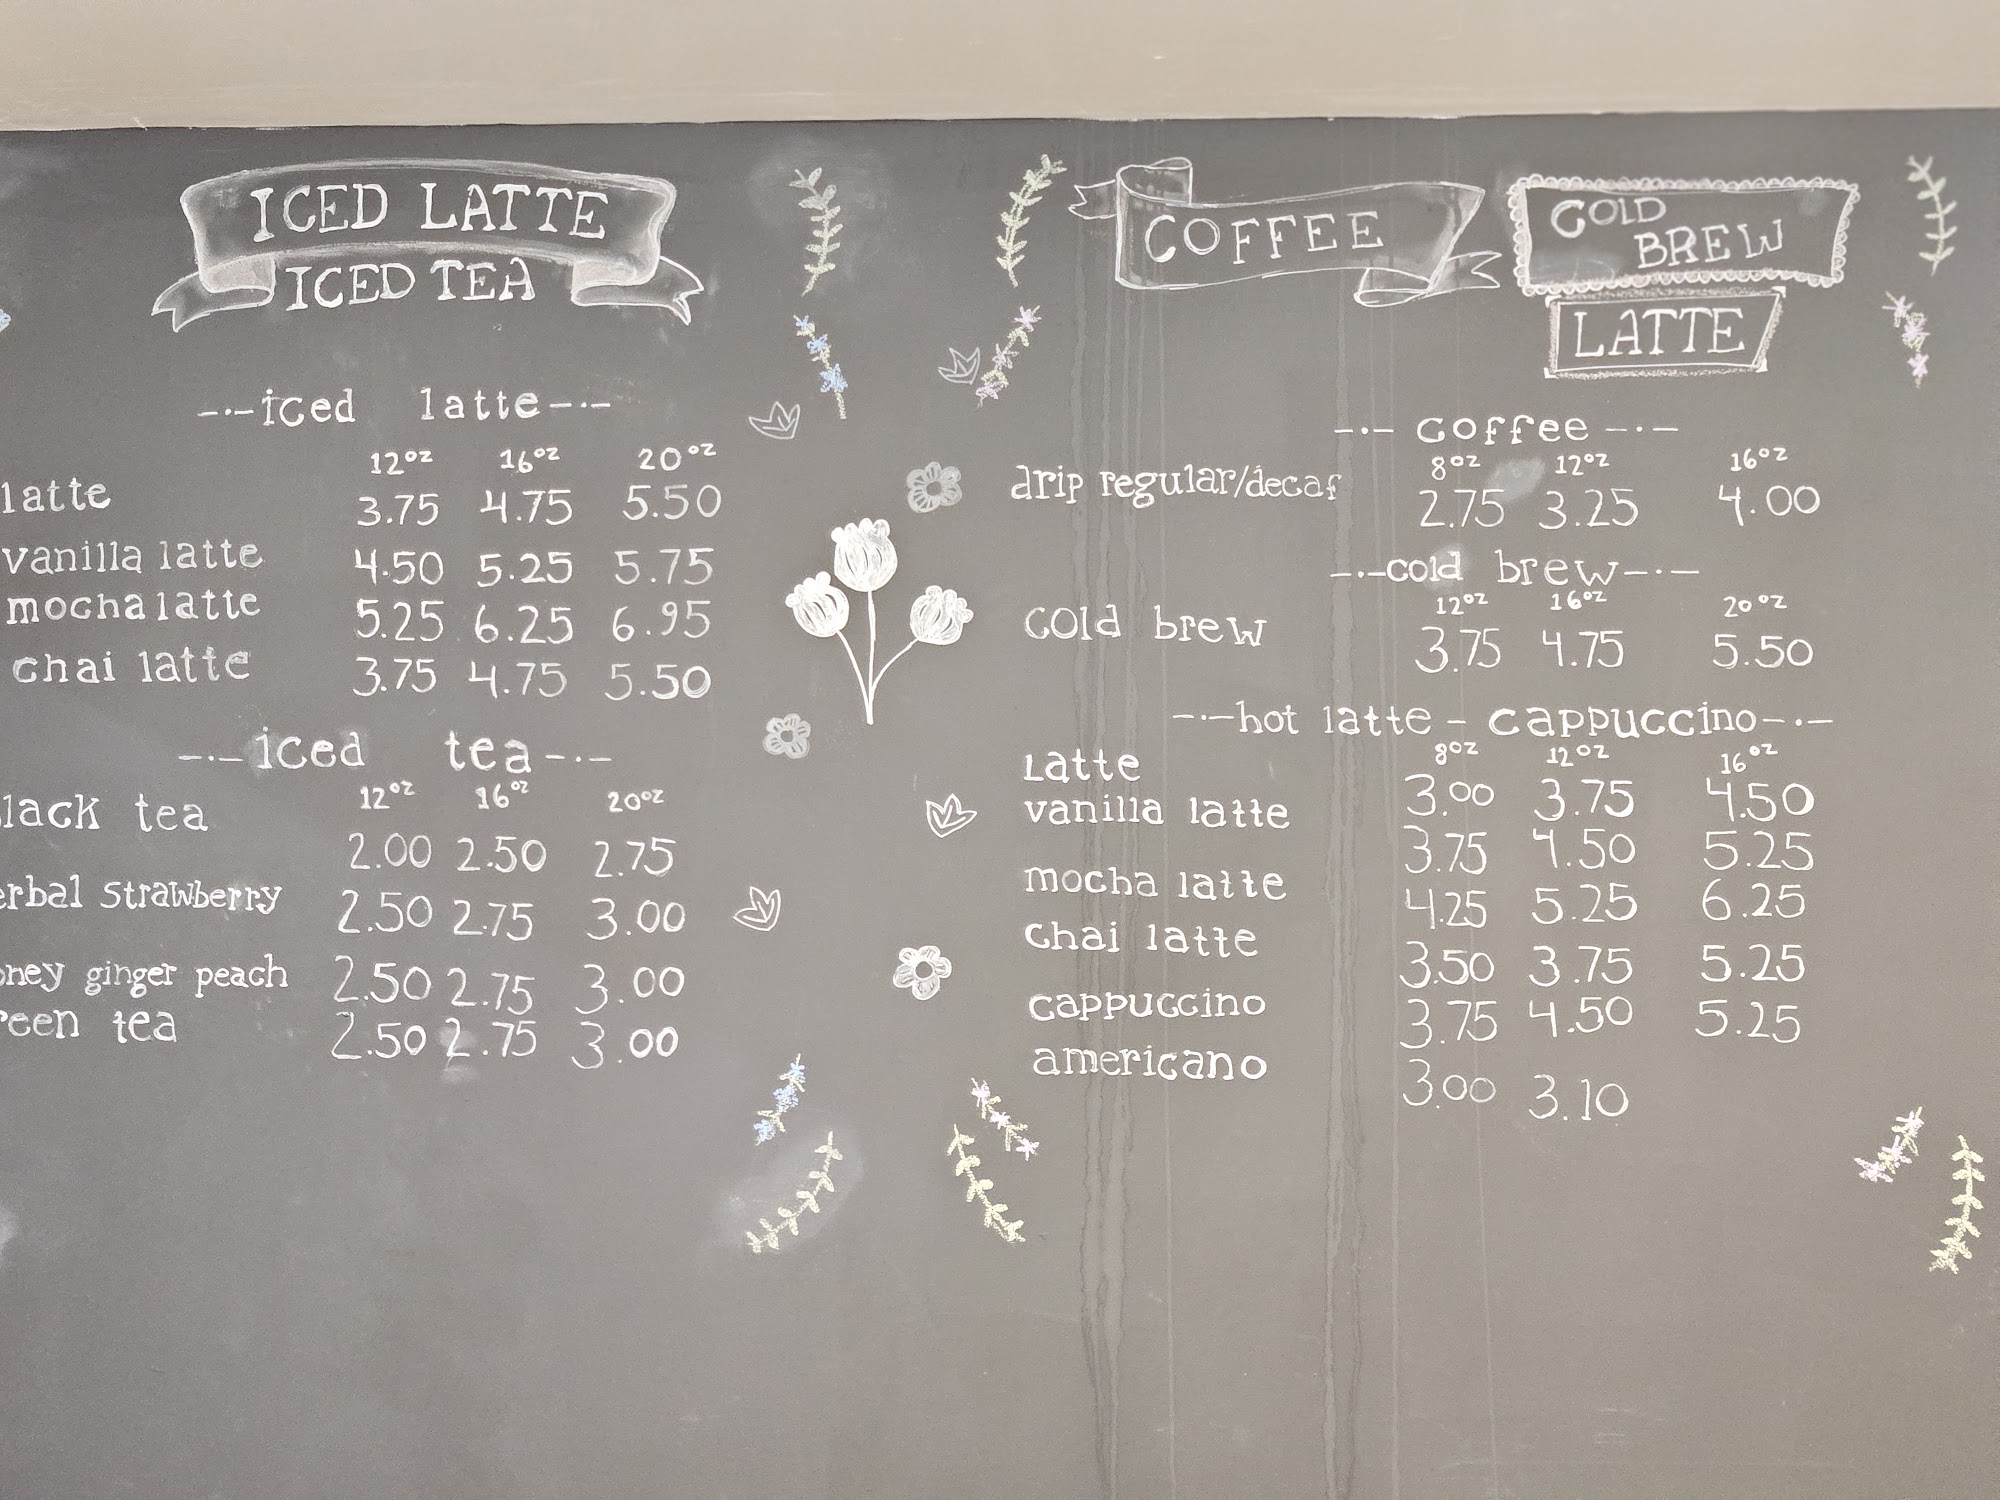 ICED LATTE
ICED TEA
--·-- iced latte --·--
12oz 16oz 20oz
latte 3.75 4.75 5.50
vanilla latte 4.50 5.25 5.75
mocha latte 5.25 6.25 6.95
chai latte 3.75 4.75 5.50
--·-- iced tea --·--
12oz 16oz 20oz
lack tea 2.00 2.50 2.75
erbal strawberry 2.50 2.75 3.00
oney ginger peach 2.50 2.75 3.00
reen tea 2.50 2.75 3.00
COFFEE
COLD
BREW
LATTE
--·-- coffee --·--
8oz 12oz 16oz
drip regular/decaf 2.75 3.25 4.00
--·-- cold brew --·--
12oz 16oz 20oz
cold brew 3.75 4.75 5.50
--·-- hot latte - cappuccino --·--
8oz 12oz 16oz
Latte 3.00 3.75 4.50
vanilla latte 3.75 4.50 5.25
mocha latte 4.25 5.25 6.25
chai latte 3.50 3.75 5.25
cappuccino 3.75 4.50 5.25
americano 3.00 3.10